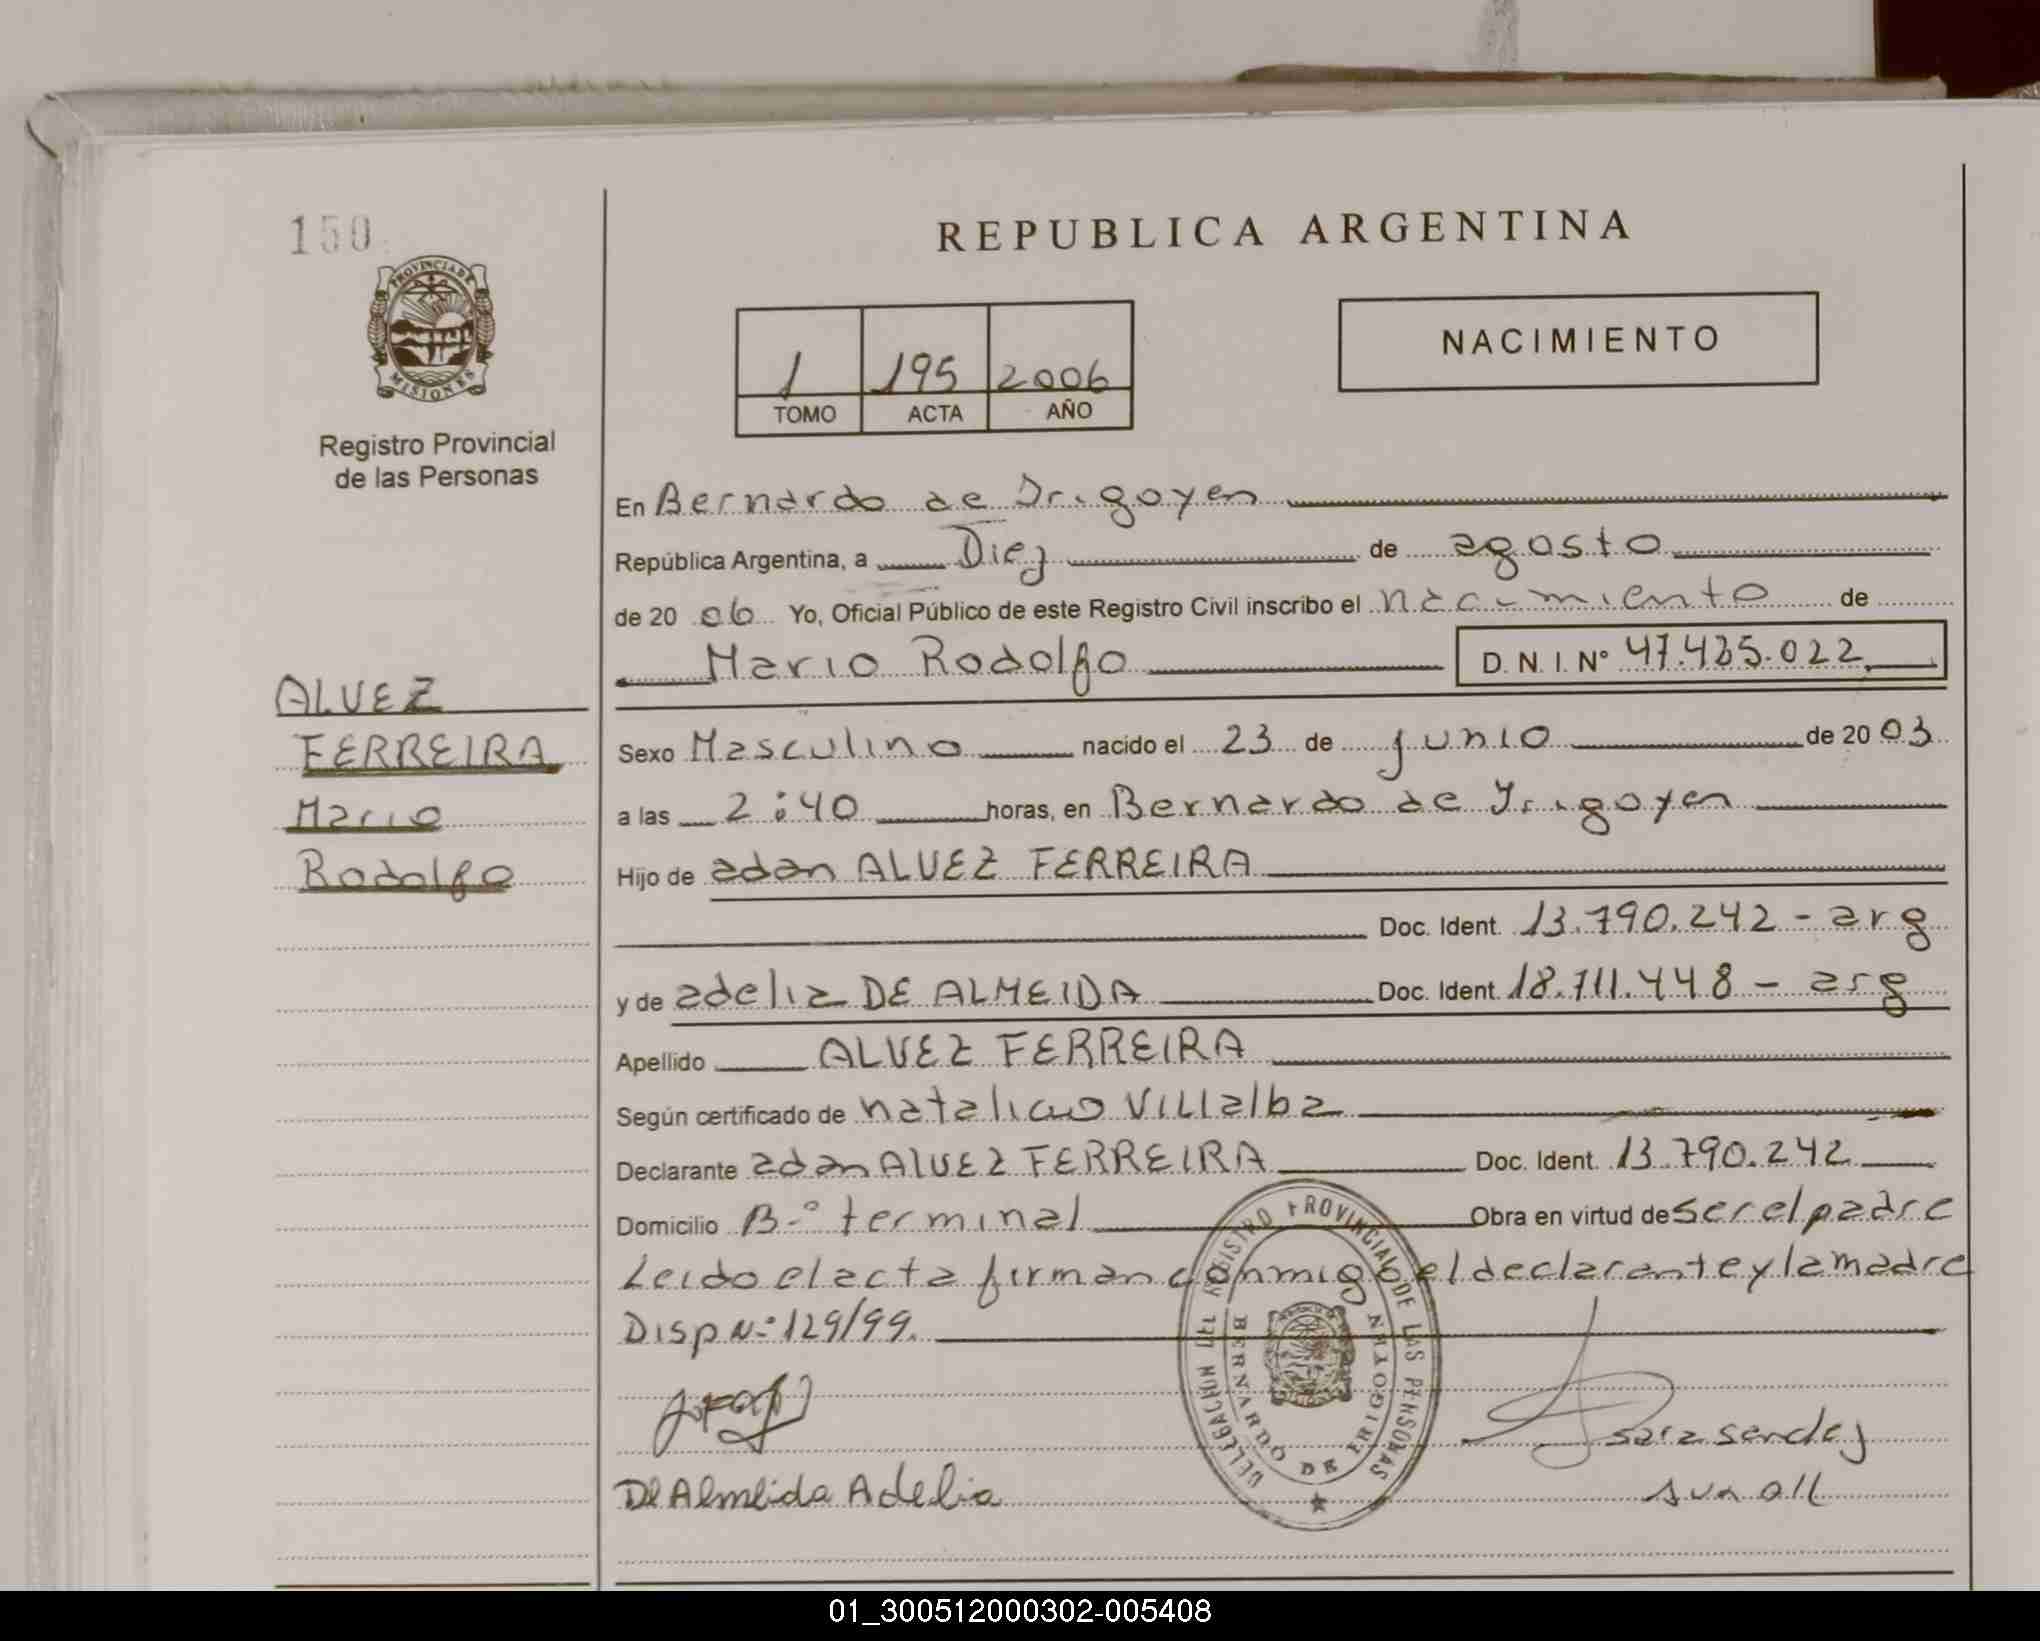 150
PROVINCIA DE
MISIONES
Registro Provincial
de las Personas
ALVEZ
FERREIRA
Mario
Rodolfo
REPUBLICA ARGENTINA
1 195 2006
TOMO ACTA AÑO
NACIMIENTO
En Bernardo de Irigoyen
República Argentina, a Diez de agosto
de 20 06 Yo, Oficial Público de este Registro Civil inscribo el nacimiento de
Mario Rodolfo D. N. I. Nº 47.435.022
Sexo Masculino nacido el 23 de junio de 20 03
a las 2:40 horas, en Bernardo de Irigoyen
Hijo de adan ALVEZ FERREIRA
Doc. Ident. 13.790.242 - arg
y de adelia DE ALMEIDA Doc. Ident. 18.711.448 - arg
Apellido ALVEZ FERREIRA
Según certificado de natalicio VILLalba
Declarante adan AlVEZ FERREIRA Doc. Ident. 13.790.242
Domicilio B.º terminal Obra en virtud de ser el padre
Leido el acta firman conmigo el declarante y la madre
Disp Nº 129/99.
De Almeida Adelia
REGISTRO PROVINCIAL DE LAS PERSONAS
BERNARDO DE IRIGOYEN
01_300512000302-005408